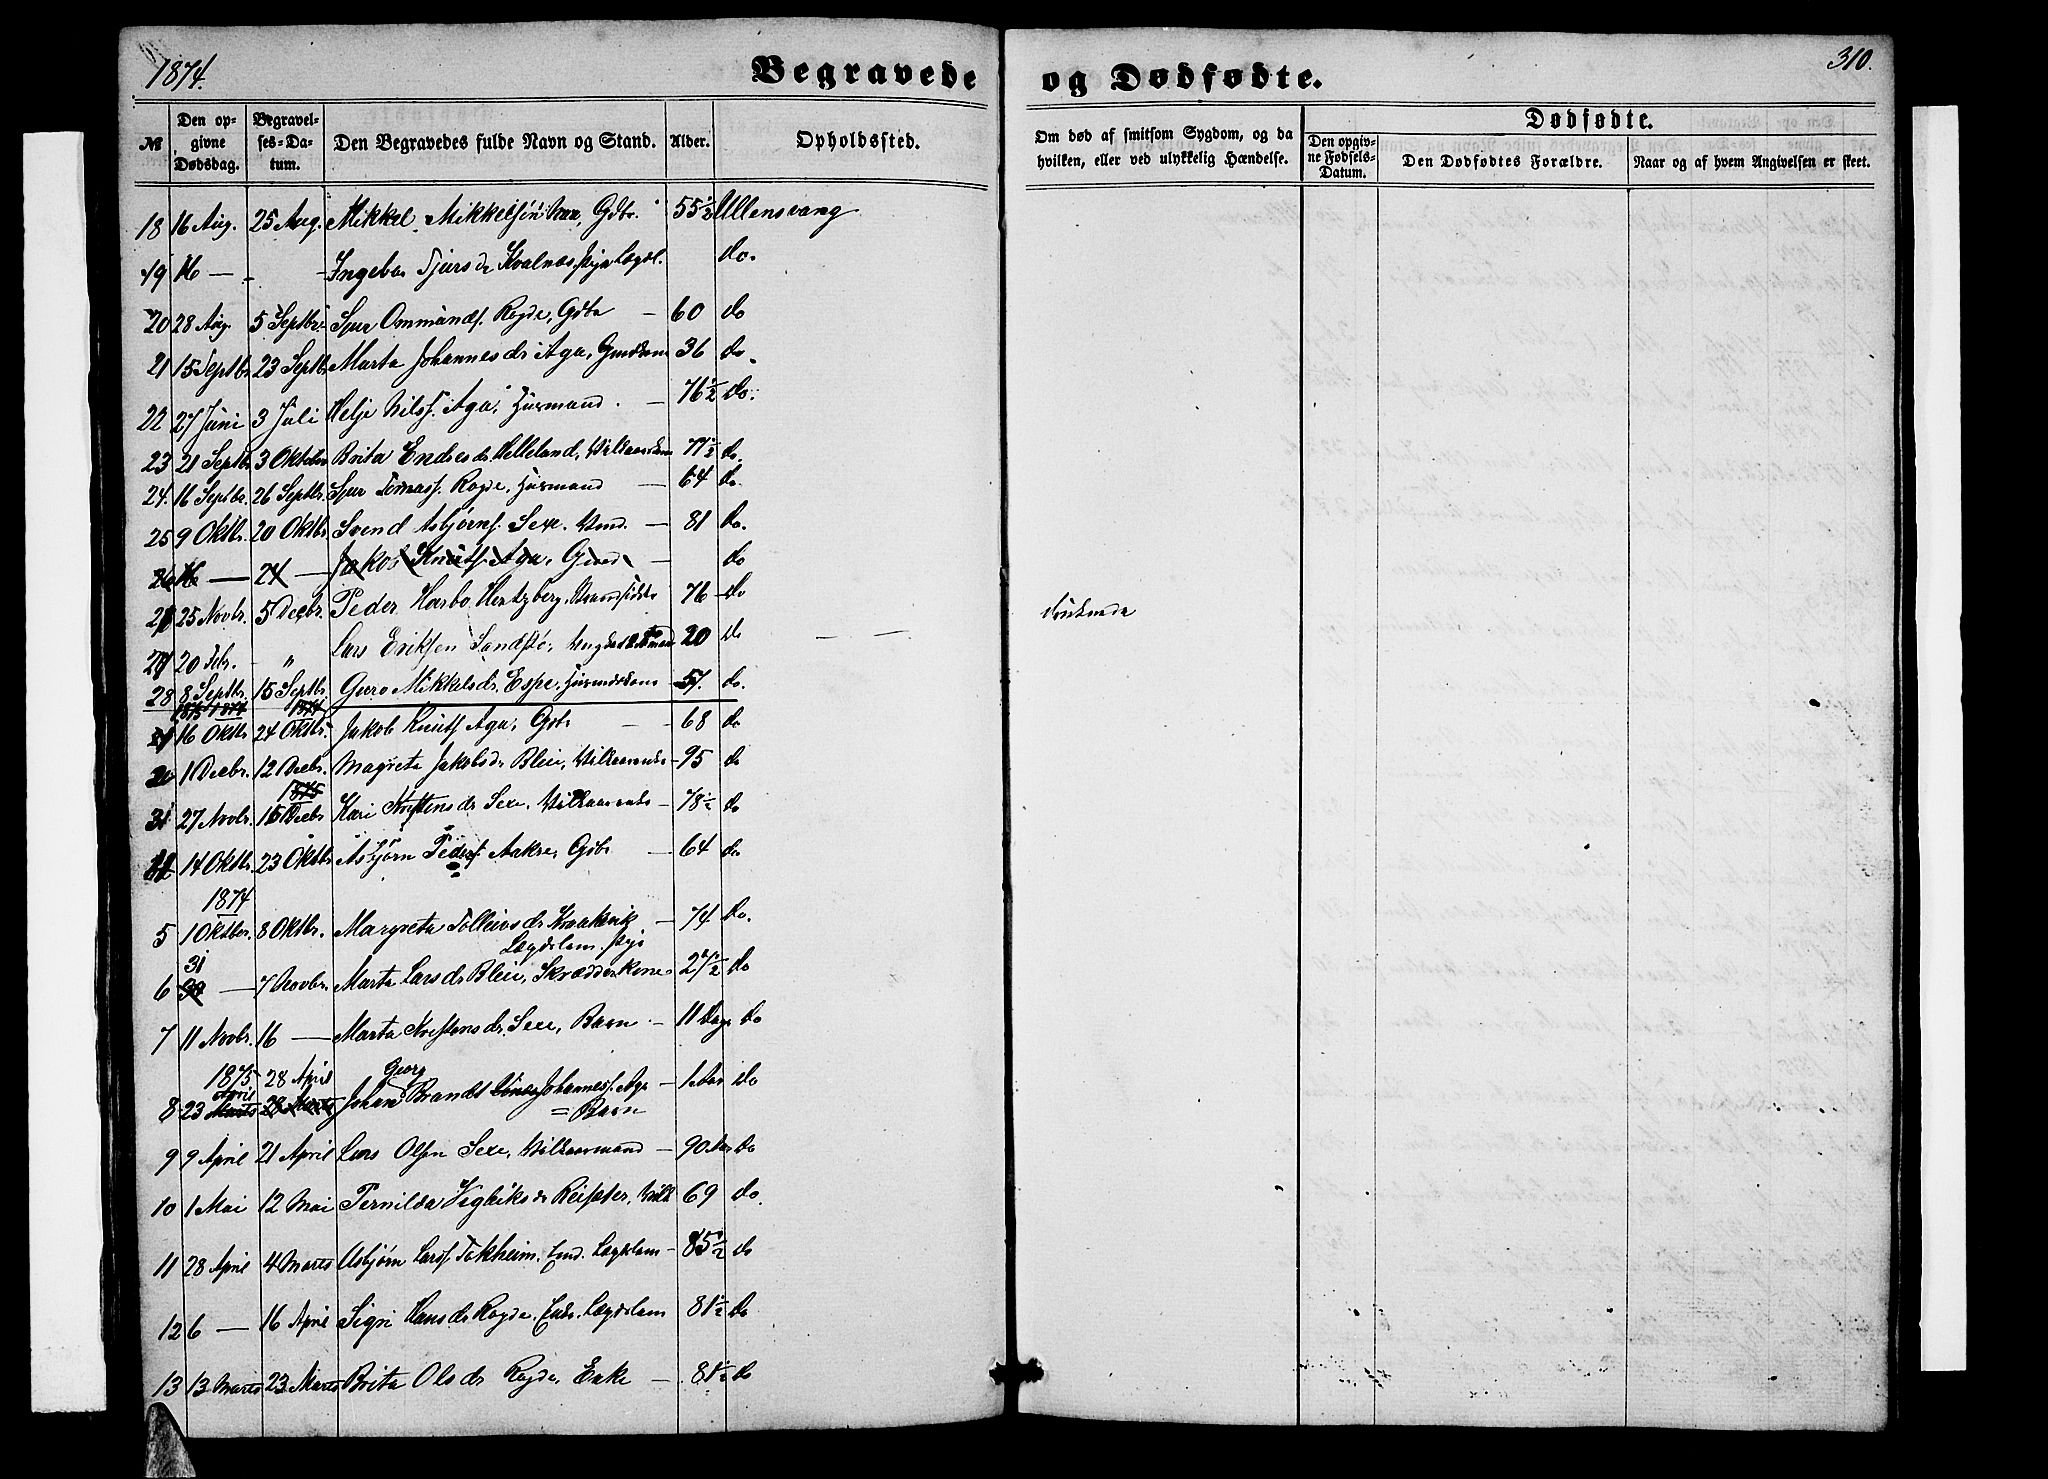 1874.
Begravede
og Dødfødte.
310.
№
Den opgivne Dødsdag.
Begravelses-Datum.
Den Begravedes fulde Navn og Stand.
Alder.
Opholdssted.
Om død af smitsom Sygdom, og da hvilken, eller ved ulykkelig Hændelse.
Dødfødte.
Den opgivne Fødsels-Datum.
Den Dødfødtes Forældre.
Naar og af hvem Angivelsen er skeet.
18 16 Aug. 25 Aug. Mikkel Mikkelsen Gdbr. 55½ Ullensvang
19 16 — - Ingebor Sjursdr Kvalnes, Lægdl. do.
20 28 Aug. 5 Septbr. Sjur Ommunds. Rogde, Gdbr — 60 do
21 15 Septbr 23 Septbr Marta Johannesdr Aga, 36 do.
22 27 Juni 3 Juli Helje Nilss. Aga, Husmand. — 76½ do.
23 21 Septb 3 Oktober Brita Endresdr Helleland, 77½ do.
24. 16 Septbr 26 Septbr. Sjur Tomass. Rogde, Husmand — 64 do.
25 9 Oktbr. 20 Oktbr. Svend Asbjørns. Sexe. — 81 do.
26 16 — 24 — Jakob Knuts. Aga, — do
25 Novbr. 5 Decbr. Peder Harbo Hertzberg, 76 do
20 Febr. " Lars Eriksen Sandstø, 20 do
28 8 Septbr. 15 Septbr. Guro Mikkelsdr. Espe, 57. do.
1875 1874 1874
16 Oktbr 24 Oktbr. Jakob Knuts Aga, Gdbr — 68 do
1 Decbr. 12 Decbr. Magreta Jakobsdr Bleie, — 95 do
1875
31 27 Novbr. 15 Decbr Kari Kristensdr Sexe, — 78½ do
14 Oktbr. 23 Oktbr Asbjørn Peders Aakre, Gdbr — 64 do
1874
5 1 Oktber. 8 Oktbr. Margreta Tolleivsdr Kraakvik — 74 do.
Lægdslem.
31
6 30 — 7 Novbr. Marta Larsdr Bleie, Skrædderkone 27½ do
7 11 Novbr. 16 — Marta Kristensdr Sexe, Barn. — 11 Dage do
1875 28 April Georg
April
8 23 Marts 28 Marts Johan Brandt Johanness. Aga — 1 Aar do
= Barn
9 9 April 21 April Lars Olsen Sexe, Vilkaarmand — 90 Aar do
10 1 Mai 12 Mai Pernilda Vigleiksdr Reisæter, Vilk 69 do.
11 28 April 4 Marts Asbjørn Larss. Tokheim, Lægdslem — 85½ do
12 6 — 16 April Sigri Hansdr Rogde, Enke, Lægdslem 81½ do
13 13 Marts 23 Marts Brita Olsdr Rogde, Enke — 81½ do
druknede